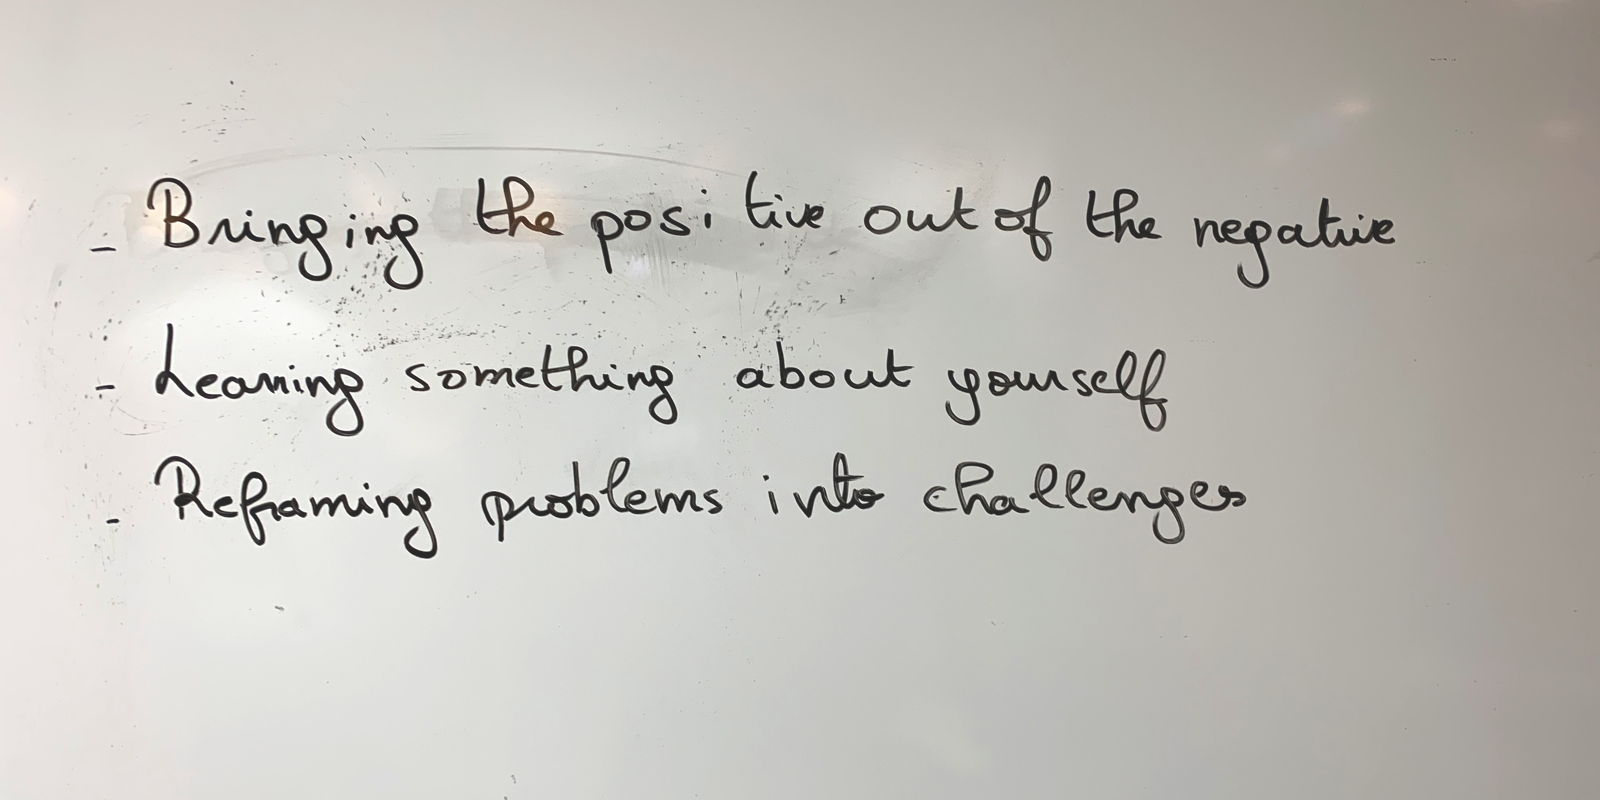 - Bringing the positive out of the negative
- Learning something about yourself
- Reframing problems into challenges